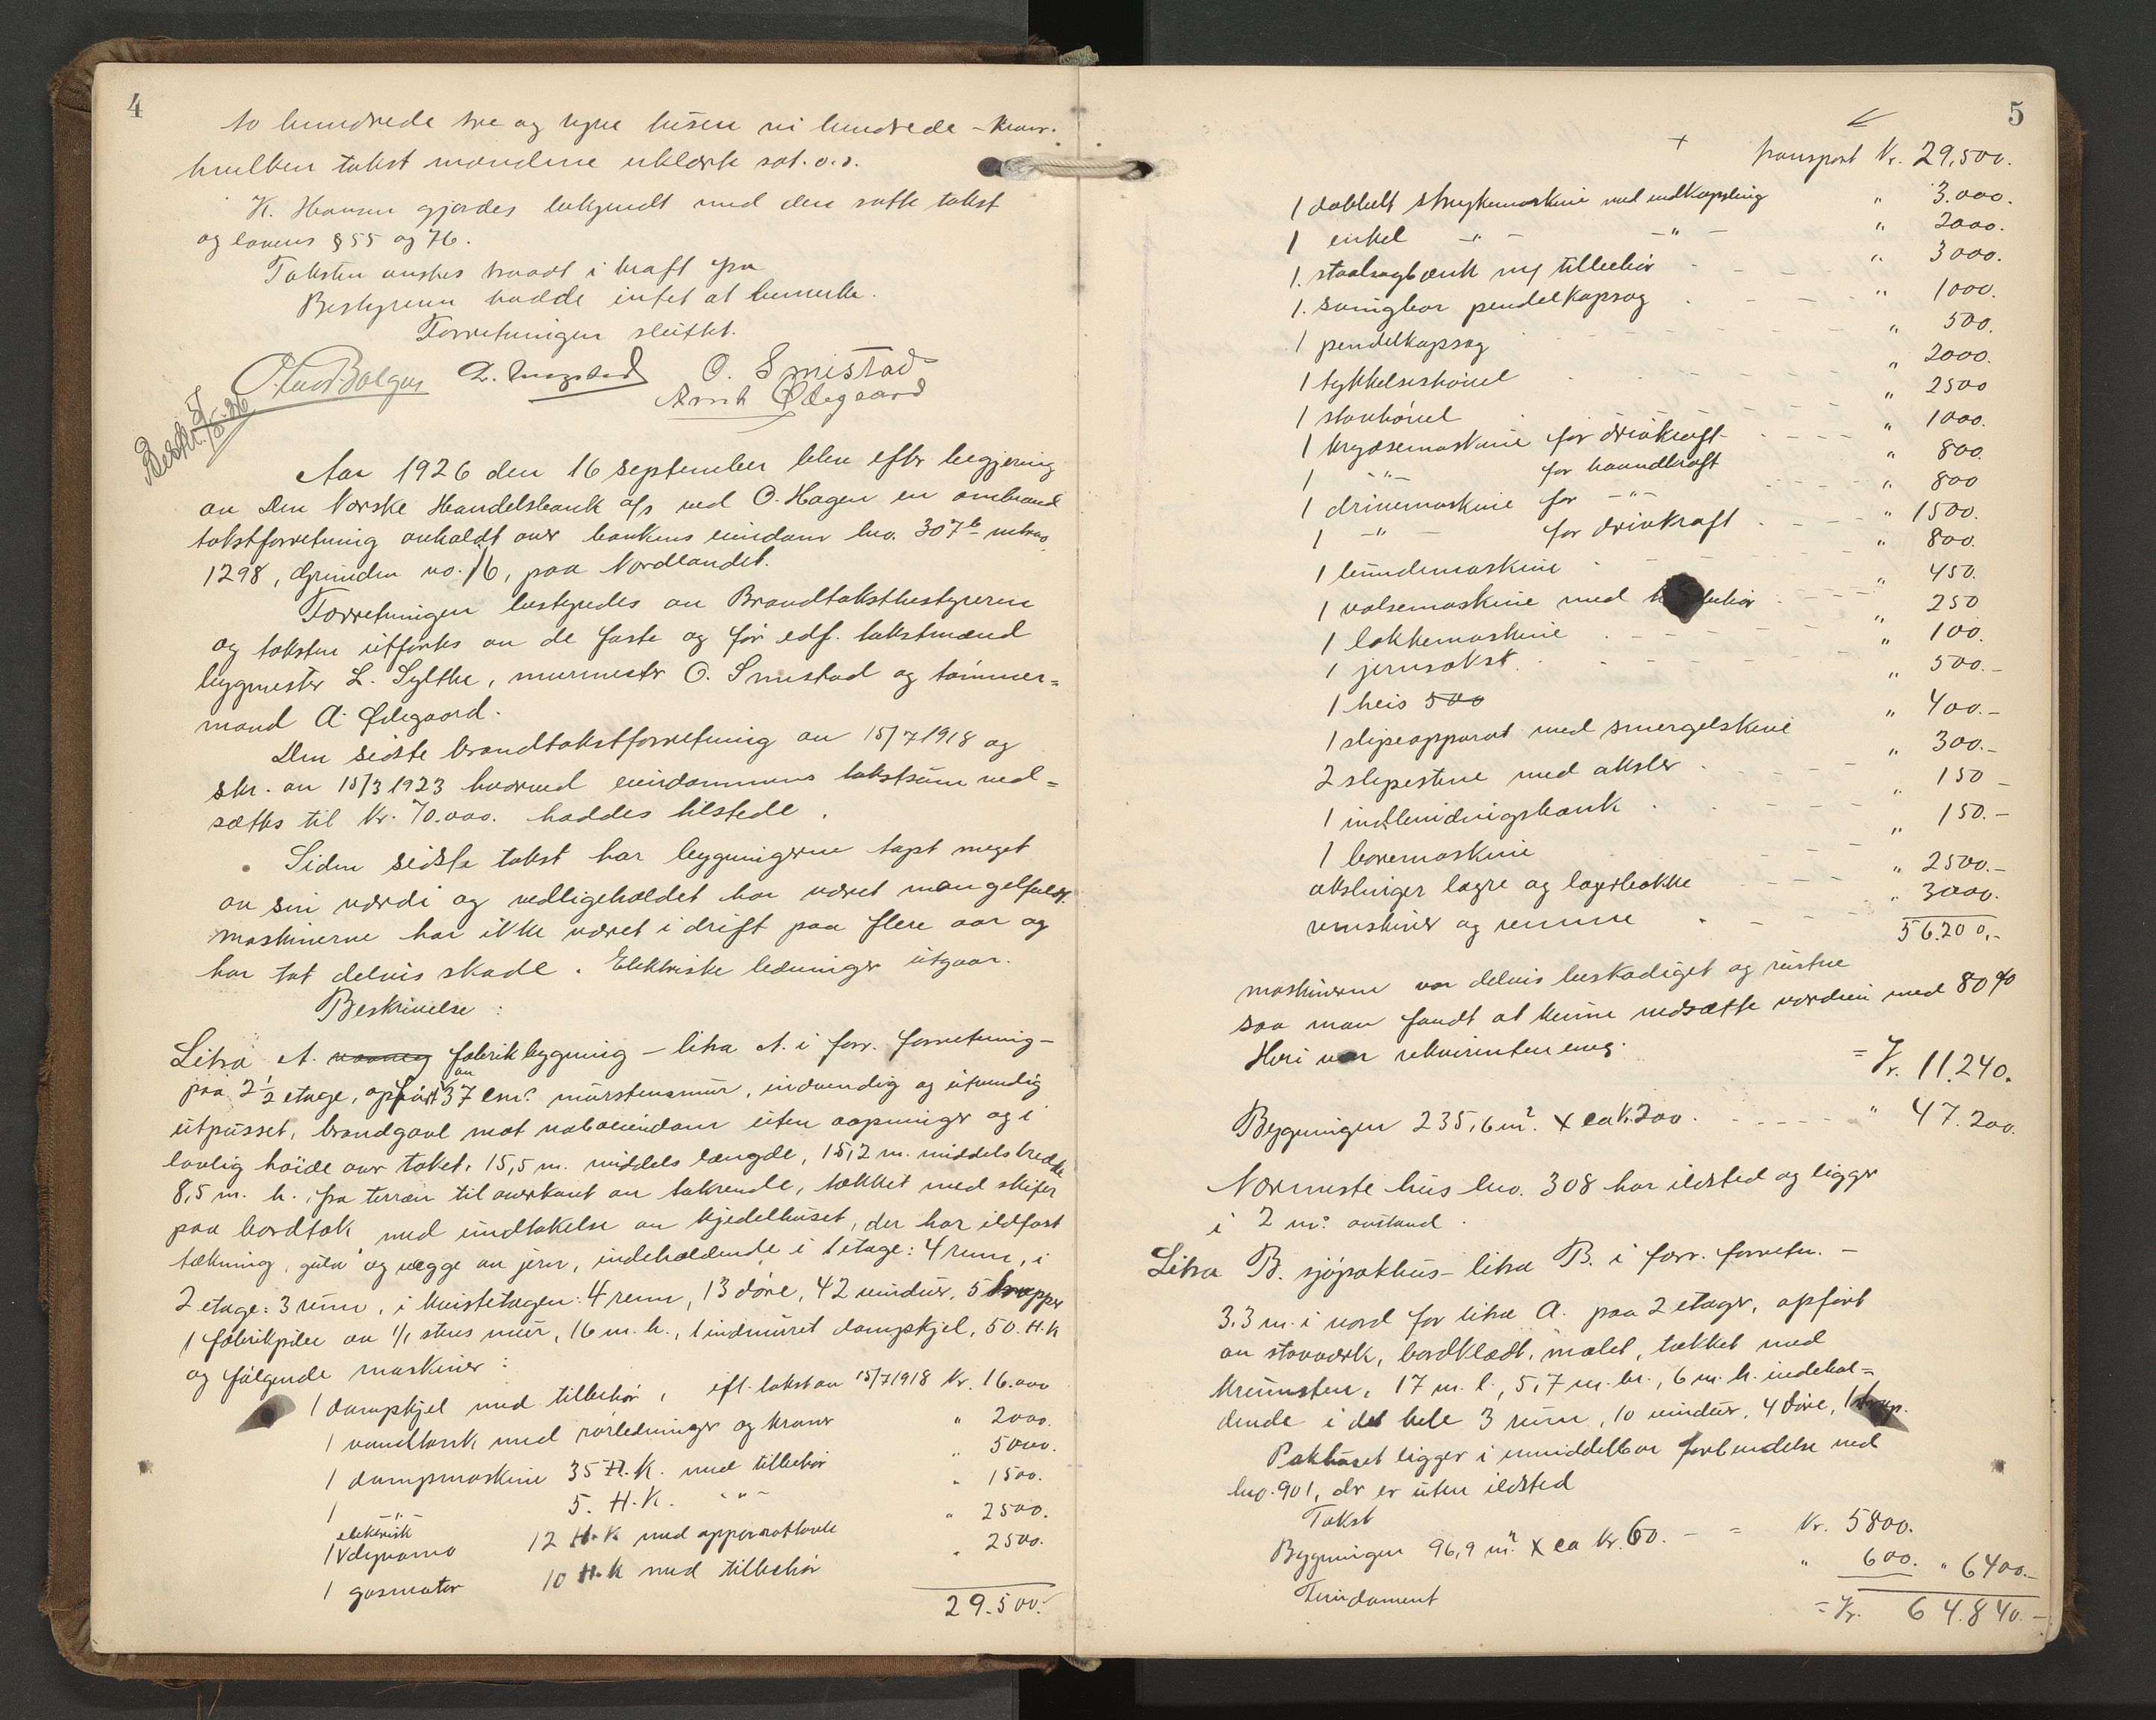 4
to hundrede tre og tyve tusen ni hundrede - kroner.
hvilken takst mændene erklærte sat. o. s.
K. Hansen gjordes bekjendt med den satte takst
og lovens § 55 og 76.
Taksten ønskes traadt i kraft fra
Bestyreren hadde intet at bemerke.
Forretningen sluttet.
O. Smistad
Arnt Ødegaard
Aar 1926 den 16 september blev efter begjæring
av Den Norske Handelsbank a/s ved O. Hagen en ombrand
takstforretning avholdt over bankens eiendom bno. 307b matr. no.
1298, Grunden no. 16, paa Nordlandet.
Forretningen bestyredes av Brandtakstbestyreren
og taksten utførtes av de faste og før edf. takstmænd
bygmester L. Sylthe, murmester O. Smistad og tømmer=
mand A. Ødegaard.
Den sidste brandtakstforretning av 15/7 1918 og
skr. av 15/3 1923 hvorved eiendommens takstsum ned=
sættes til Kr. 70.000. haddes tilstede.
Siden sidste takst har bygningerne tapt meget
av sin værdi og vedlikeholdet har været mangelfuldt.
Maskinerne har ikke været i drift paa flere aar og
har tat delvis skade. Elektriske ledninger utgaar.
Beskrivelse:
Litra A. fabrikbygning - litra A. i forr. forretning -
paa 2 1/2 etage, opført av 37 cm. murstensmur, indvendig og utvendig
utpusset, brandgavl mot naboeiendom uten aapninger og i
lovlig høide over taket. 15,5 m. middels længde, 15,2 m. middels bredde
8,5 m. h. fra terræn til overkant av takrende, tækket med skifer
paa bordtak med undtakelse av kjedelhuset, der har ildfast
tækning, gulv og vægge av jern, indeholdende i 1 etage: 4 rum, i
2 etage: 3 rum, i kvistetagen: 4 rum, 13 døre, 42 vinduer, 5 trapper
1 fabrikpipe av 1/1 stens mur, 16 m. h., 1 indmuret dampkjel, 50. H.K
og følgende maskiner:
1 dampkjel med tilbehør, eft. takst av 15/7 1918 Kr. 16.000
1 vandtank med rørledninger og kraner " 2000.
1 dampmaskine 35 H.K. med tilbehør " 5000.
1 -"- 5. H.K. -"- " 1500.
1 elektrisk dynamo 12 H.K med apparattavle " 2500.
1 gasmotor 10 H.K med tilbehør " 2500.
29.500.
5
+ Transport Kr. 29,500.
1 dobbelt strykemaskine med indkapsling " 3.000.
1 enkel -"- -"- " 2000.
1. staalsagbænk m/ tilbehør " 3000.
1. svingbar pendelkapsag " 1000.
1 pendelkapsag " 500.
1 tykkelseshøvel " 2000.
1 stavhøvel " 2500
1 krydsemaskine for drivkraft " 1000.
1 -"- for haandkraft " 800.
1 drivemaskine for -"- " 800
1 -"- for drivkraft " 1500.
1 bundemaskine " 800.
1 valsemaskine med tilbehør " 450.
1 lokkemaskine " 250
1 jernsakst. " 100.
1 heis 500 " 500.-
1 slipeapparat med smergelskive " 400.-
2 slipestene med aksler " 300.-
1 indbindingsbænk " 150 -
1 boremaskine " 150.-
akslinger lagre og lagerbokke " 2500.-
remskiver og remme " 3000.
56.200,-
maskinerne var delvis beskadiget og rustne
saa man fandt at kunne nedsætte værdien med 80%
Heri var rekvirenten enig. = Kr. 11.240.
Bygningen 235,6 m². x ca k. 200. " 47.200.
Nærmeste hus bno. 308 har ildsted og ligger
i 2 m. avstand.
Litra B. sjøpakhus - litra B. i forr. forretn. -
3.3 m. i nord for litra A. paa 2 etager, opført
av stavværk, bordklædt, malet, tækket med
krumsten. 17 m. l., 5,7 m. br., 6 m. h. indehol=
dende i det hele 3 rum, 10 vinduer, 4 døre, 1 trap.
Pakhuset ligger i umiddelbar forbindelse med
bno. 901, der er uten ildsted
Takst
Bygningen 96,9 m². x ca kr. 60. - = Kr. 5800.
Fundament " 600. " 6400.-
= Kr. 64.840.-